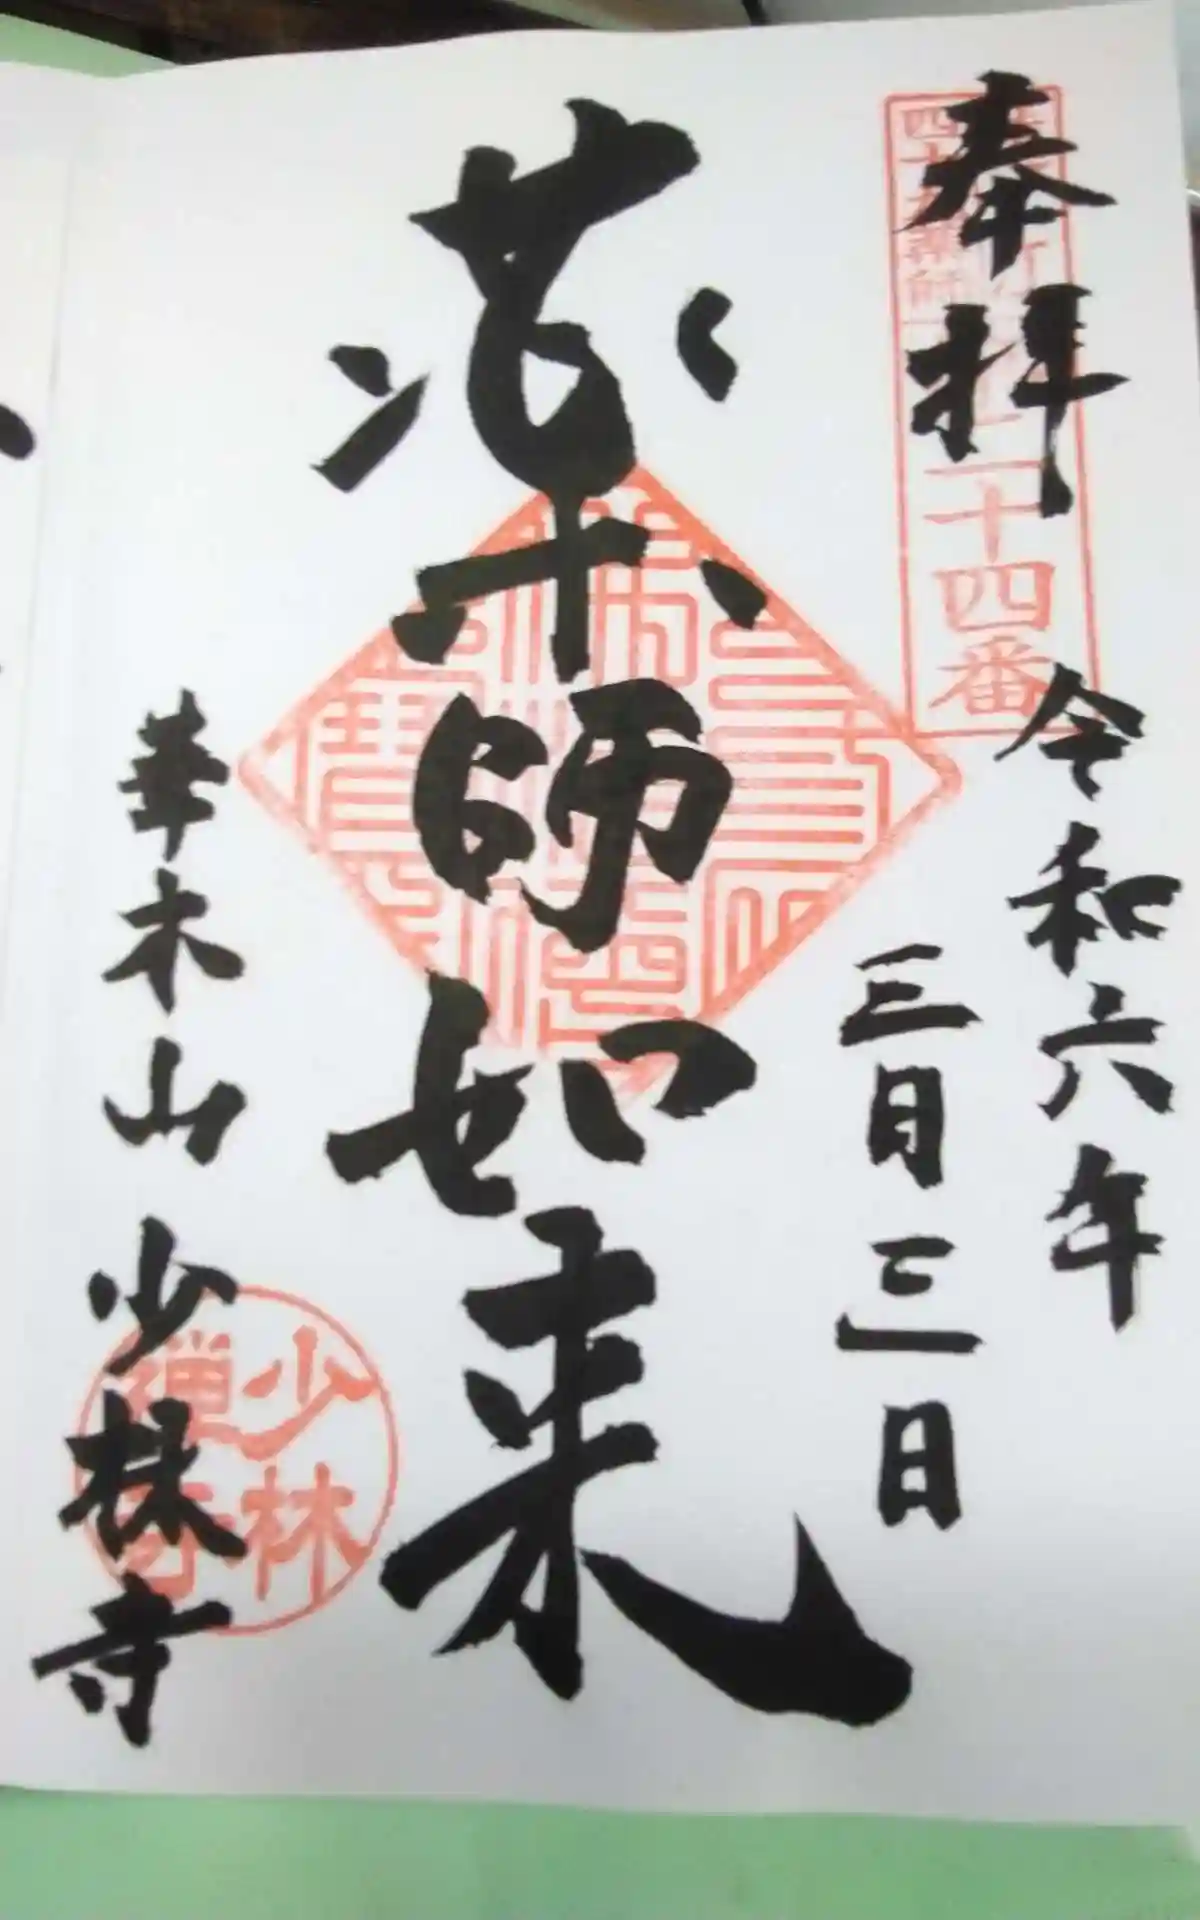 奉拝
四十九薬師
二十四番
令和六年
三月三日
薬師如来
三宝
華木山 少林寺
少林
禅寺